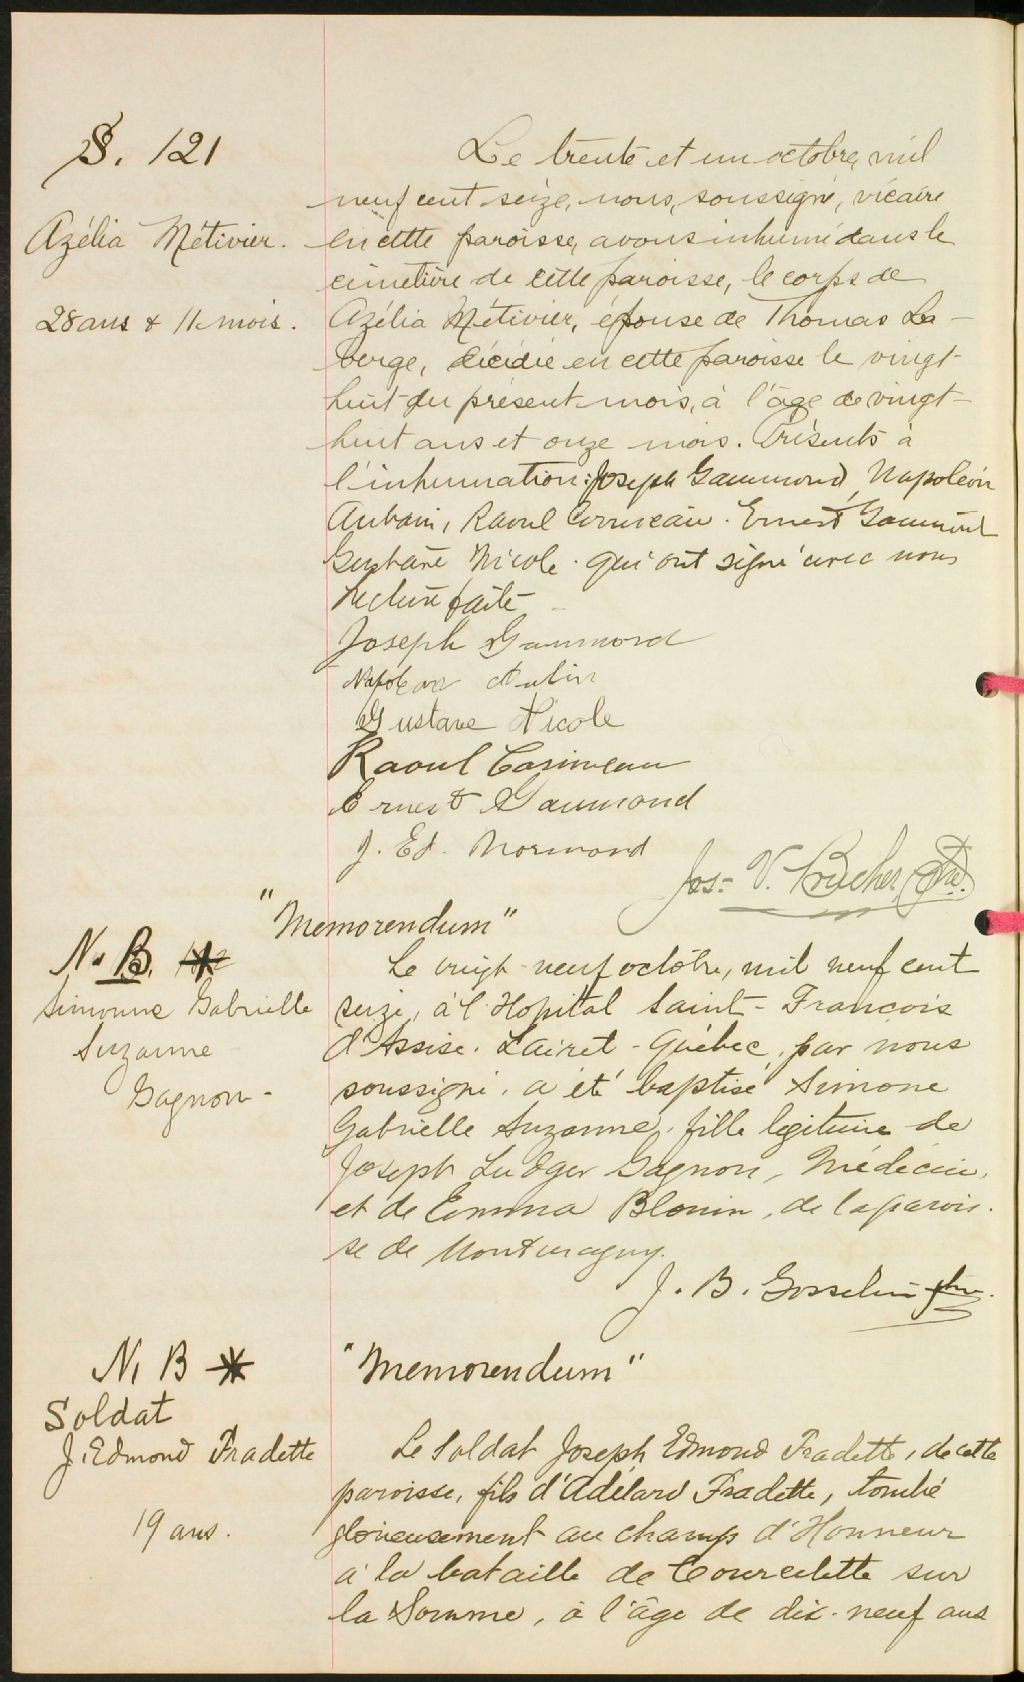 S. 121
Le trente et un octobre, mil
neuf cent seize, nous, soussigné, vicaire
Azélia Métivier.
en cette paroisse, avons inhumé dans le
cimetière de cette paroisse, le corps de
28 ans & 11 mois.
Azélia Métivier, épouse de Thomas La-
berge, décédée en cette paroisse le vingt-
huit du présent mois, à l'âge de vingt-
huit ans et onze mois. Présents à
l'inhumation: Joseph Gaumond, Napoléon
Aubain, Raoul Corriveau. Ernest Gaumond
Gustave Nicole. qui ont signé avec nous
lecture faite
Joseph Gaumond
Napoleon Aubin
Gustave Nicole
Raoul
Ernest Gaumond
J. Ed. Normand
Jos. V. Ptre.
"Memorendum"
N. B.
Le vingt-neuf octobre, mil neuf cent
Simonne Gabrielle
seize, à l'Hopital Saint-François
Suzanne
d'Assise. Lairet-Québec, par nous
Gagnon-
soussigné, a été baptisé Simone
Gabrielle Suzanne, fille legitime de
Joseph Ludger Gagnon, Médecin,
et de Emma Blouin, de la parois-
se de Montmagny.
J. B. Gosselin ptre.
N. B *
"Memorendum"
Soldat
J. Edmond Fradette
Le Soldat Joseph Edmond Fradette, de cette
paroisse, fils d'Adélard Fradette, tombé
19 ans.
glorieusement au champ d'Honneur
à la bataille de Courcelette sur
la Somme, à l'âge de dix-neuf ans